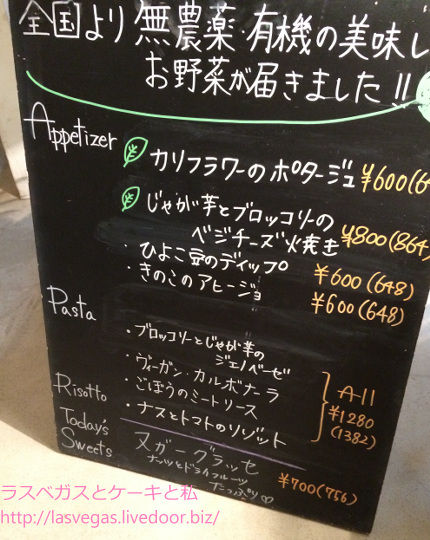 全国より無農薬・有機の美味し
お野菜が届きました!!
Appetizer
カリフラワーのポタージュ ¥600(6
じゃが芋とブロッコリーの
ベジチーズ火焼き ¥800(864)
・ひよこ豆のディップ ¥600(648)
・きのこのアヒージョ ¥600(648)
Pasta
・ブロッコリーとじゃが芋の
ジェノベーゼ
・ヴィーガン・カルボナーラ
・ごぼうのミートソース
Risotto
・ナスとトマトのリゾット
All
¥1280
(1382)
Today's
Sweets
ヌガーグラッセ
ナッツとドライフルーツ
たっぷり♡
¥700(756)
ラスベガスとケーキと私
http://lasvegas.livedoor.biz/